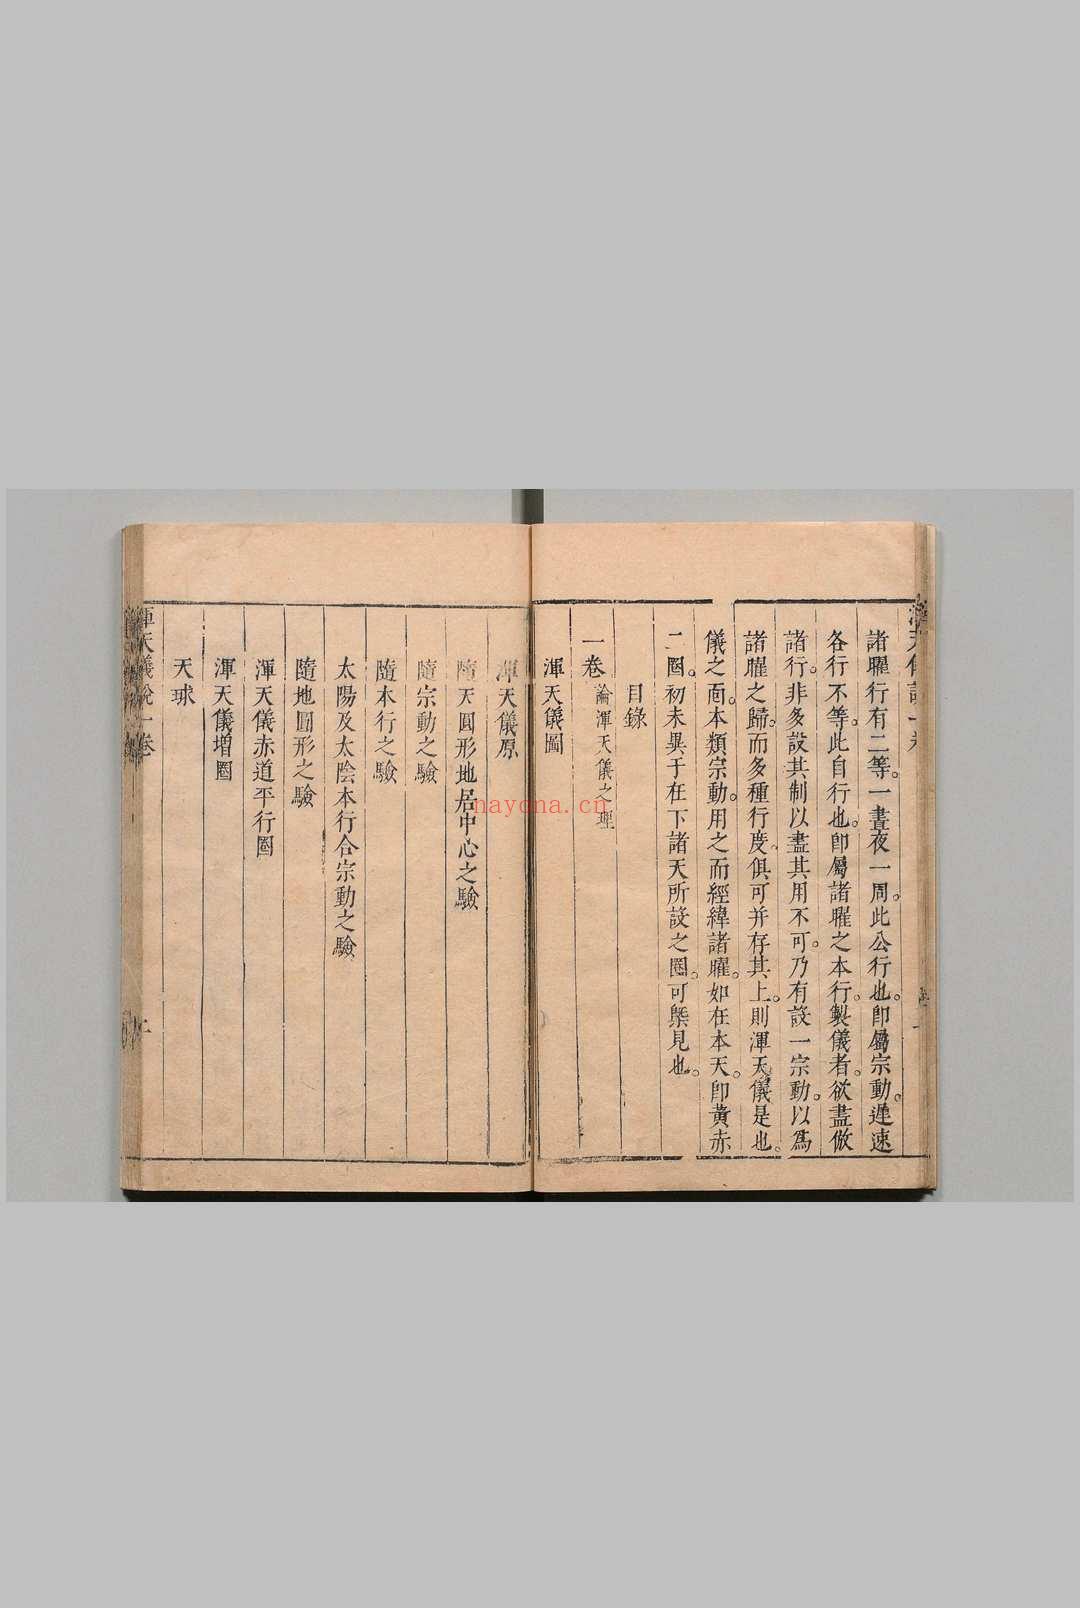 諸曜行有二等。一晝夜一周。此公行也。卽屬宗動。遲速
各行不等。此自行也。卽屬諸曜之本行。製儀者。欲盡倣
諸行。非多設其制以盡其用不可。乃有設一宗動。以爲
諸曜之歸。而多種行度。俱可并存其上。則渾天儀是也。
儀之面。本類宗動。用之而經緯諸曜。如在本天。卽黃赤
二圈。初未異于在下諸天所設之圈。可槩見也。
目錄
一卷 論渾天儀之理
渾天儀圖
渾天儀原
隨天圓形地居中心之驗
隨宗動之驗
隨本行之驗
太陽及太陰本行合宗動之驗
隨地圓形之驗
渾天儀赤道平行圈
渾天儀增圈
天球
渾天儀說一卷
nayona.cn